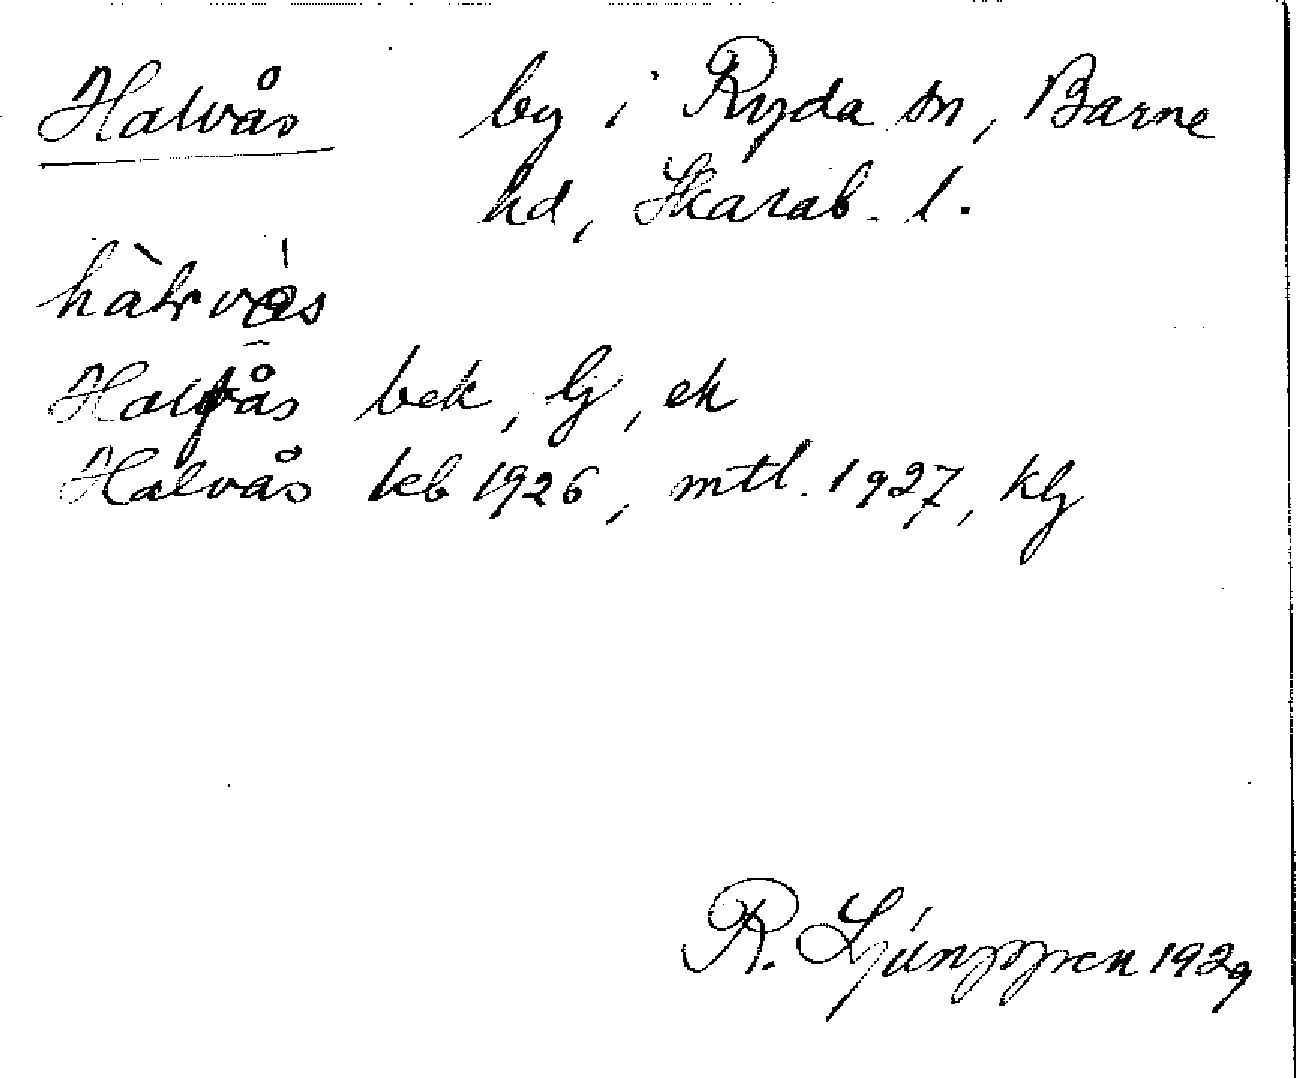 Halvås by i Ryda sn, Barne
hd, Skarab. l.
Halvås bek, lj, ek
Halvås kb 1926, mtl. 1927, klj
R. Ljunggren 1929